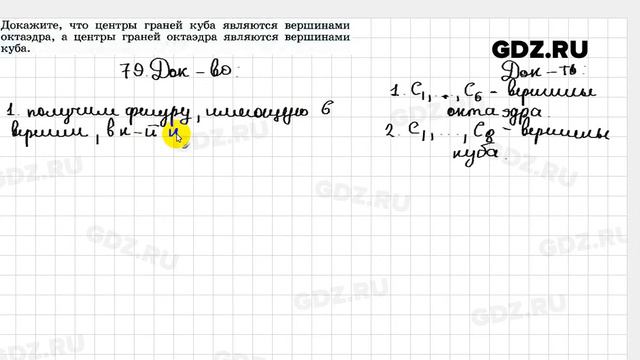 Докажите, что центры граней куба являются вершинами
октаэдра, а центры граней октаэдра являются вершинами
куба.
GDZ.RU
79. Док-во:
1. получим фигуру, имеющую 6
вершин, в к-й и
Док-ть:
1. C₁, ..., C₆ - вершины
октаэдра.
2. C₁, ..., C₈ - вершины
куба.
GDZ.RU
GDZ.RU
GDZ.RU
GDZ.RU
GDZ.RU